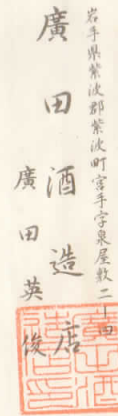 岩手県紫波郡紫波町宮手字泉屋敷二ー四
廣田酒造店
廣田英俊